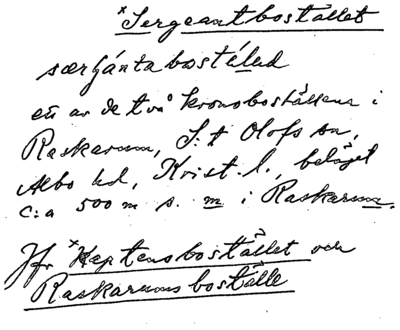 ×Sergeantbostället
særhánta bostélad
ett av de två kronoboställena i
Raskarum, S:t Olofs sn,
Albo hd, Krist. l., beläget
c:a 500 m s. m i Raskarum.
Jfr ×Kaptensbostället och
Raskarums boställe